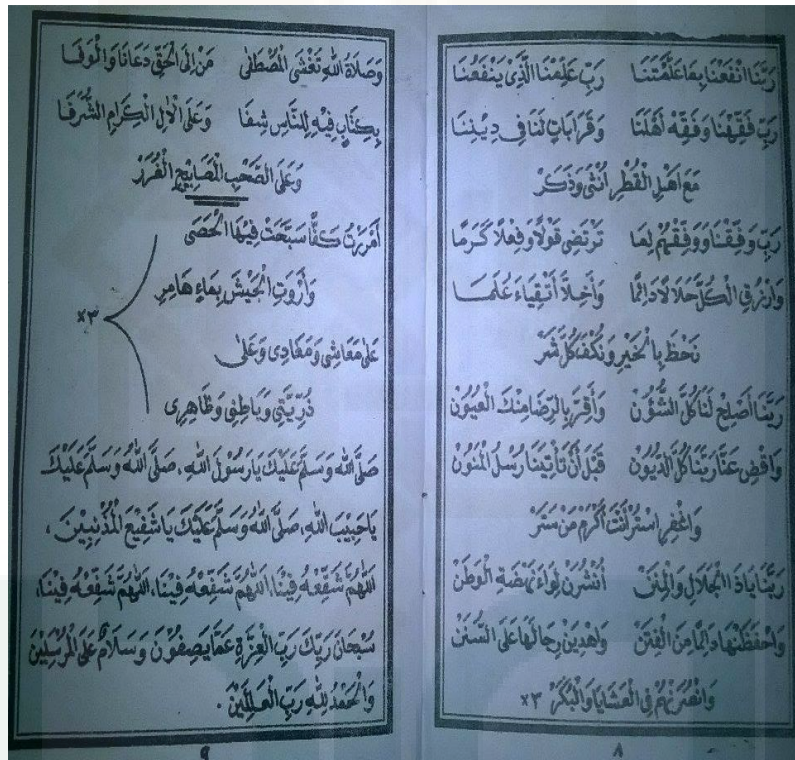 رَبَّنَا انْفَعْنَا بِمَا عَلَّمْتَنَا رَبِّ عَلِّمْنَا الَّذِيْ يَنْفَعُنَا
رَبِّ فَقِّهْنَا وَفَقِّهْ أَهْلَنَا وَقَرَابَاتٍ لَنَا فِي دِيْنِنَا
مَعَ أَهْلِ الْقُطْرِ أُنْثَى وَذَكَرْ
رَبِّ وَفِّقْنَا وَوَفِّقْهُمْ لِمَا تَرْتَضِى قَوْلًا وَفِعْلًا كَرَمَا
وَارْزُقِ الْكُلَّ حَلَالًا دَائِمًا وَأَخِلَّا أَتْقِيَاءَ عُلَمَا
نَحْظَ بِالْخَيْرِ وَنُكْفَ كُلَّ شَرّْ
رَبَّنَا أَصْلِحْ لَنَا كُلَّ الشُّؤُنْ وَأَقِرَّ بِالرِّضَا مِنْكَ الْعُيُوْنْ
وَاقْضِ عَنَّا رَبَّنَا كُلَّ الدُّيُوْنْ قَبْلَ أَنْ تَأْتِيَنَا رُسُلُ الْمَنُوْنْ
وَاغْفِرِ اسْتُرْ أَنْتَ أَكْرَمُ مَنْ سَتَرْ
رَبَّنَا يَاذَا الْجَلَالِ وَالْمِنَنْ أُنْشُرَنْ لِوَاءَ نَهْضَةِ الْوَطَنْ
وَاحْفَظَنْهَا دَائِمًا مِنَ الْفِتَنْ وَاهْدِيَنْ رِجَالَهَا عَلَى السُّنَنْ
وَانْصُرَنْهُمْ فِى الْعَشَايَا وَالْبُكَرْ ×٣
٨
وَصَلَاةُ اللهِ تَغْشَى الْمُصْطَفَى مَنْ إِلَى الْحَقِّ دَعَانَا وَالْوَفَا
بِكِتَابٍ فِيْهِ لِلنَّاسِ شِفَا وَعَلَى الْاٰلِ الْكِرَامِ الشُّرَفَا
وَعَلَى الصَّحْبِ الْمَصَابِيْحِ الْغُرَرْ
أَمْرَرْتُ كَفًّا سَبَّحَتْ فِيْهَا الْحَصَى
وَأَرْوَتِ الْجَيْشَ بِمَاءٍ هَامِرِ
×٣
عَلَى مَعَاشِى وَمَعَادِى وَعَلَى
ذُرِّيَّتِى وَبَاطِنِى وَظَاهِرِى
صَلَّى اللهُ وَسَلَّمَ عَلَيْكَ يَارَسُوْلَ اللهِ، صَلَّى اللهُ وَسَلَّمَ عَلَيْكَ
يَا حَبِيْبَ اللهِ، صَلَّى اللهُ وَسَلَّمَ عَلَيْكَ يَا شَفِيْعَ الْمُذْنِبِيْنَ،
اَللّٰهُمَّ شَفِّعْهُ فِيْنَا، اَللّٰهُمَّ شَفِّعْهُ فِيْنَا، اَللّٰهُمَّ شَفِّعْهُ فِيْنَا،
سُبْحَانَ رَبِّكَ رَبِّ الْعِزَّةِ عَمَّا يَصِفُوْنَ وَسَلَامٌ عَلَى الْمُرْسَلِيْنَ
وَالْحَمْدُ لِلّٰهِ رَبِّ الْعَالَمِيْنَ.
٩